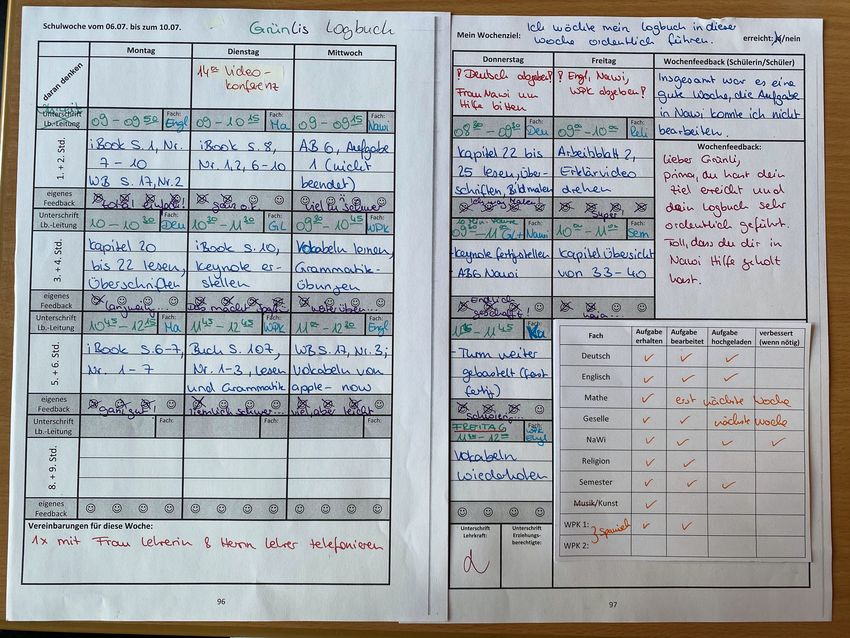 Schulwoche vom 06.07. bis zum 10.07.
Grünlis Logbuch
Montag
Dienstag
Mittwoch
daran denken
14⁰⁰ Video-
konferenz
Unterschrift
Lb.-Leitung
09 - 09⁵⁰
Fach:
Engl
09 - 10¹⁵
Fach:
Ma
09 - 09¹⁵
Fach:
Nawi
1. + 2. Std.
iBook S. 1, Nr.
7 - 10
WB S. 17, Nr. 2
iBook S. 8,
Nr. 1, 2, 6-10
AB 6, Aufgabe
1 (nicht
beendet)
eigenes
Feedback
total einfach!
ganz ok
viel zu schwer
Unterschrift
Lb.-Leitung
10 - 10³⁰
Fach:
Deu
10³⁰ - 11³⁰
Fach:
GL
Fach:
WPK
3. + 4. Std.
Kapitel 20
bis 22 lesen,
Überschriften
iBook S. 10,
Keynote er-
stellen
Vokabeln lernen,
Grammatik-
übungen
eigenes
Feedback
langweilig
Das macht Spaß!
weiter üben...
Unterschrift
Lb.-Leitung
10⁴⁵ - 12¹⁵
Fach:
Ma
11⁴⁵ - 12⁴⁵
Fach:
WPK
11⁰⁰ - 12³⁰
Fach:
Engl
5. + 6. Std.
iBook S. 6-7,
Nr. 1 - 7
Buch S. 107,
Nr. 1-3, lesen
und Grammatik
WB S. 17, Nr. 3;
Vokabeln von
apple - now
eigenes
Feedback
ganz gut!
ziemlich schwer...
viel, aber leicht
Unterschrift
Lb.-Leitung
Fach:
Fach:
Fach:
8. + 9. Std.
eigenes
Feedback
Vereinbarungen für diese Woche:
1x mit Frau Lehrerin & Herrn Lehrer telefonieren
96
Mein Wochenziel:
Ich möchte mein Logbuch in dieser
Woche ordentlich führen.
erreicht: ja/nein
Donnerstag
Freitag
Wochenfeedback (Schülerin/Schüler)
! Deutsch abgeben!
Frau Nawi um
Hilfe bitten
! Engl, Nawi,
WPK abgeben!
Insgesamt war es eine
gute Woche, die Aufgabe
in Nawi konnte ich nicht
bearbeiten.
08³⁰ - 09³⁰
Fach:
Deu
09⁰⁰ - 10⁰⁰
Fach:
Reli
Kapitel 22 bis
25 lesen, Über-
schriften, Bild malen
Arbeitblatt 2,
Erklärvideo
drehen
Super!
Wochenfeedback:
Lieber Grünli,
prima, du hast dein
Ziel erreicht und
dein Logbuch sehr
ordentlich geführt.
Toll, dass du dir in
Nawi Hilfe geholt
hast.
Fach:
GL + Nawi
10⁰⁰ - 11⁰⁰
Fach:
Sem
Keynote fertigstellen
AB6 Nawi
Kapitelübersicht
von 33-40
Endlich
geschafft!
naja...
- Turm weiter
gebastelt (fast
fertig)
schwierig...
FREITAG
WPK
Engl
Vokabeln
wiederholen
Unterschrift
Lehrkraft:
Unterschrift
Erziehungs-
berechtigte:
Fach
Aufgabe
erhalten
Aufgabe
bearbeitet
Aufgabe
hochgeladen
verbessert
(wenn nötig)
Deutsch ✓ ✓ ✓
Englisch ✓ ✓ ✓
Mathe ✓ erst nächste Woche
Geselle ✓ ✓ nächste Woche
NaWi ✓ ✓ ✓ ✓
Religion ✓ ✓
Semester ✓ ✓ ✓
Musik/Kunst ✓
WPK 1: } Spanisch ✓ ✓
WPK 2:
97